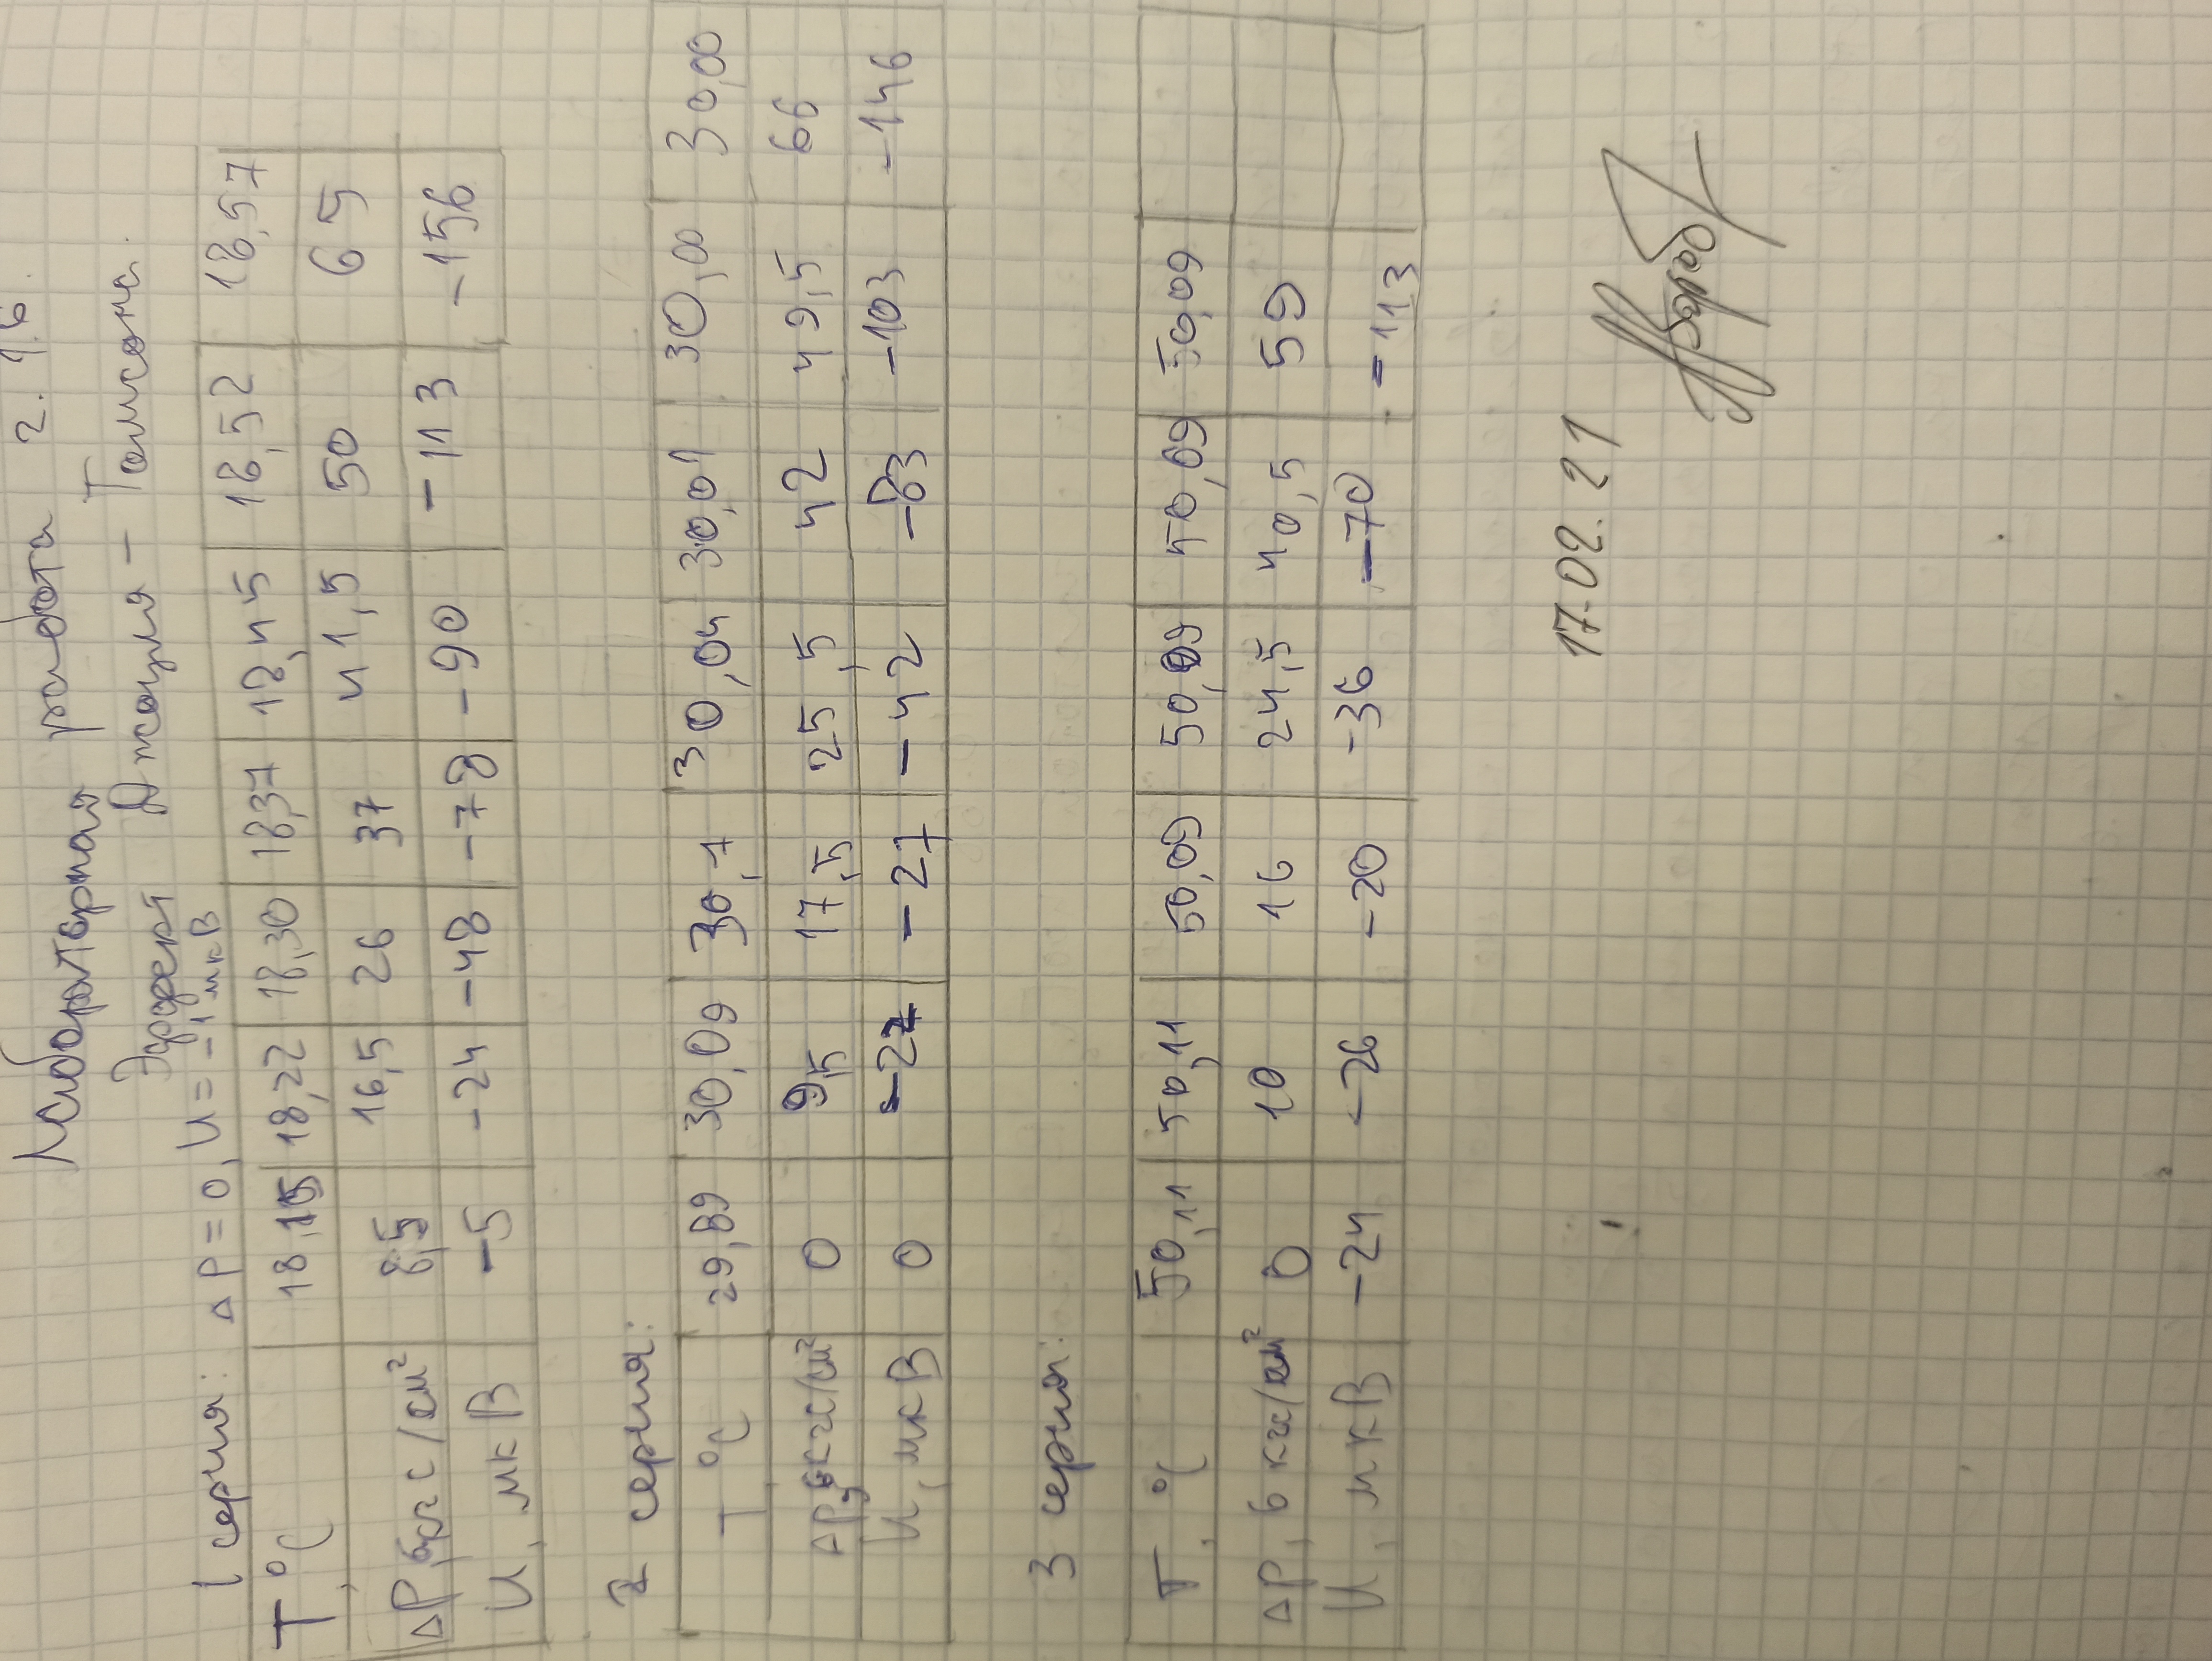 Лабораторная работа 2.1.6.
Эффект Джоуля - Томсона.
1 серия: ΔP = 0, U = -1 мкВ
T, °C 18,15 18,22 18,30 18,37 18,45 18,52 18,57
ΔP, 6кгс/см² 8,5 16,5 26 37 41,5 50 65
U, мкВ -5 -24 -48 -78 -90 -113 -156
2 серия:
T, °C 29,89 30,09 30,1 30,04 30,01 30,00 30,00
ΔP, 6кгс/см² 0 9,5 17,5 25,5 42 49,5 66
U, мкВ 0 -27 -27 -42 -83 -103 -146
3 серия:
T, °C 50,11 50,11 50,09 50,09 50,09 50,09
ΔP, 6 кгс/см² 0 10 16 24,5 40,5 59
U, мкВ -24 -26 -20 -36 -70 -113
17.02.21